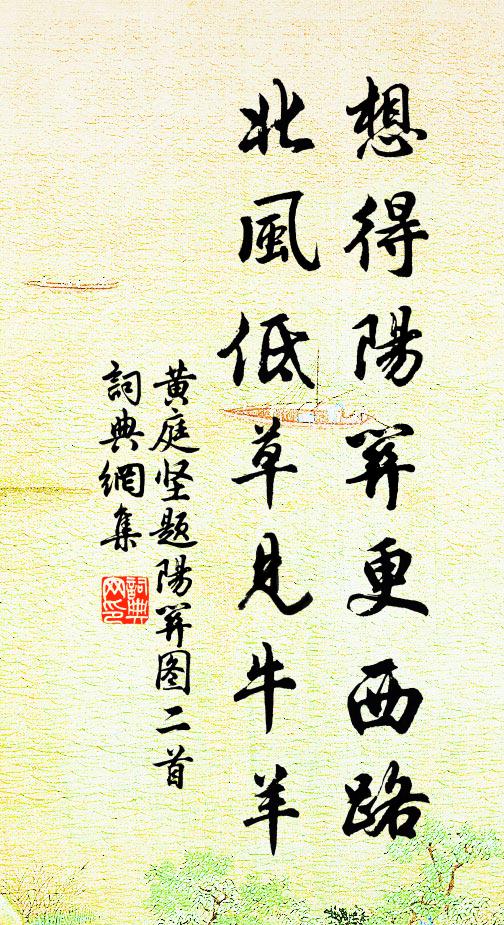 想得陽關更西路
北風低草見牛羊
黄庭坚题陽關图二首
詞典網集
詞典网印